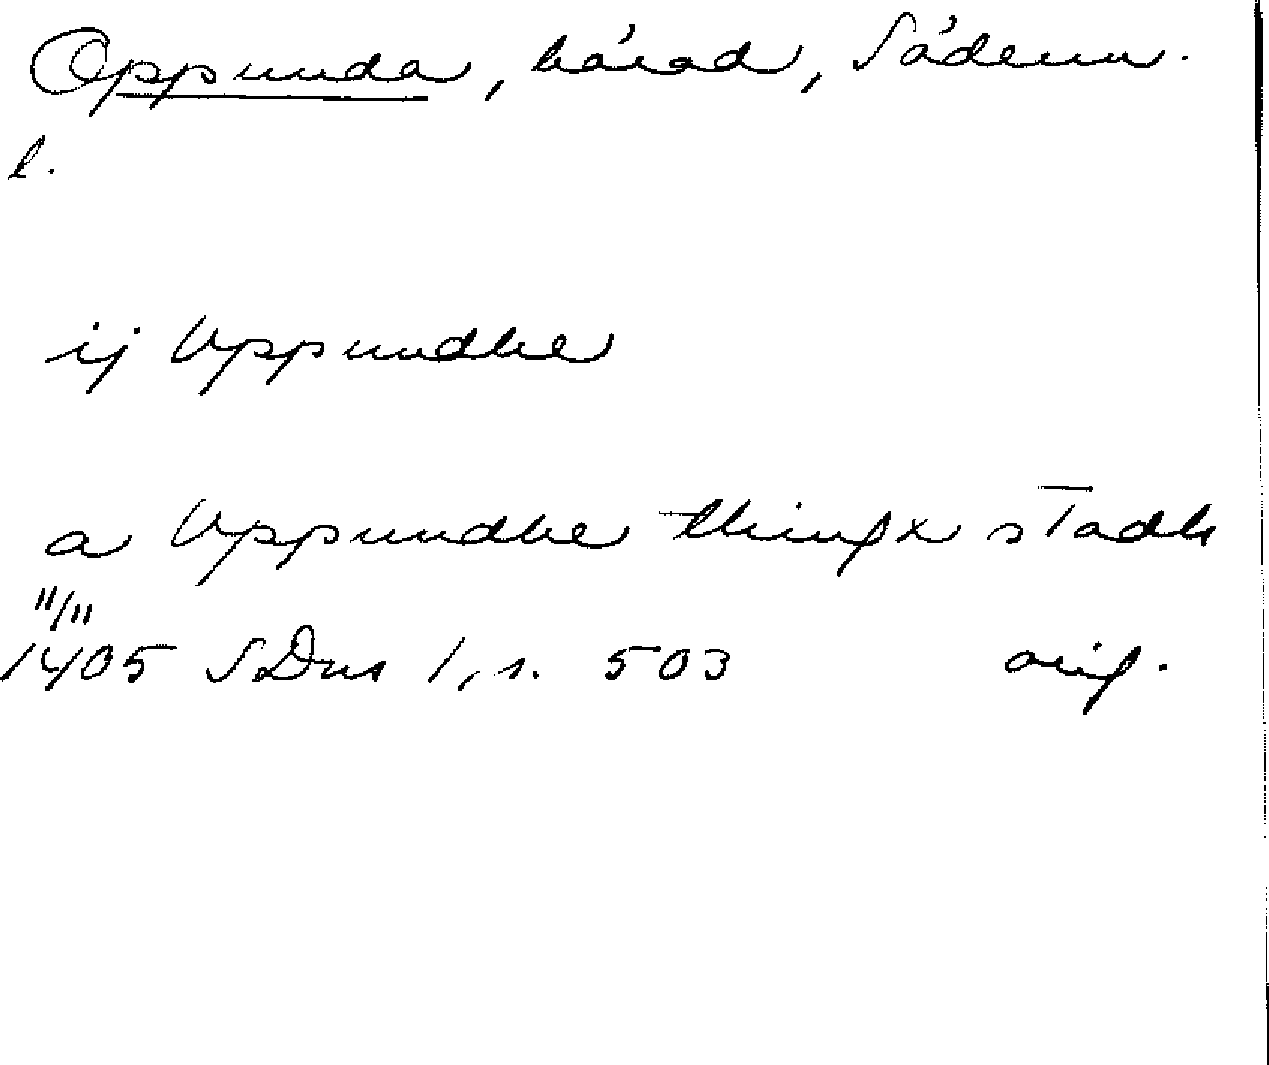 Oppunda, härad, Söderm.
l.
ij Vppundhe
a Vppundhe thingx stadh
11/11
1405 SDns 1, s. 503 orig.